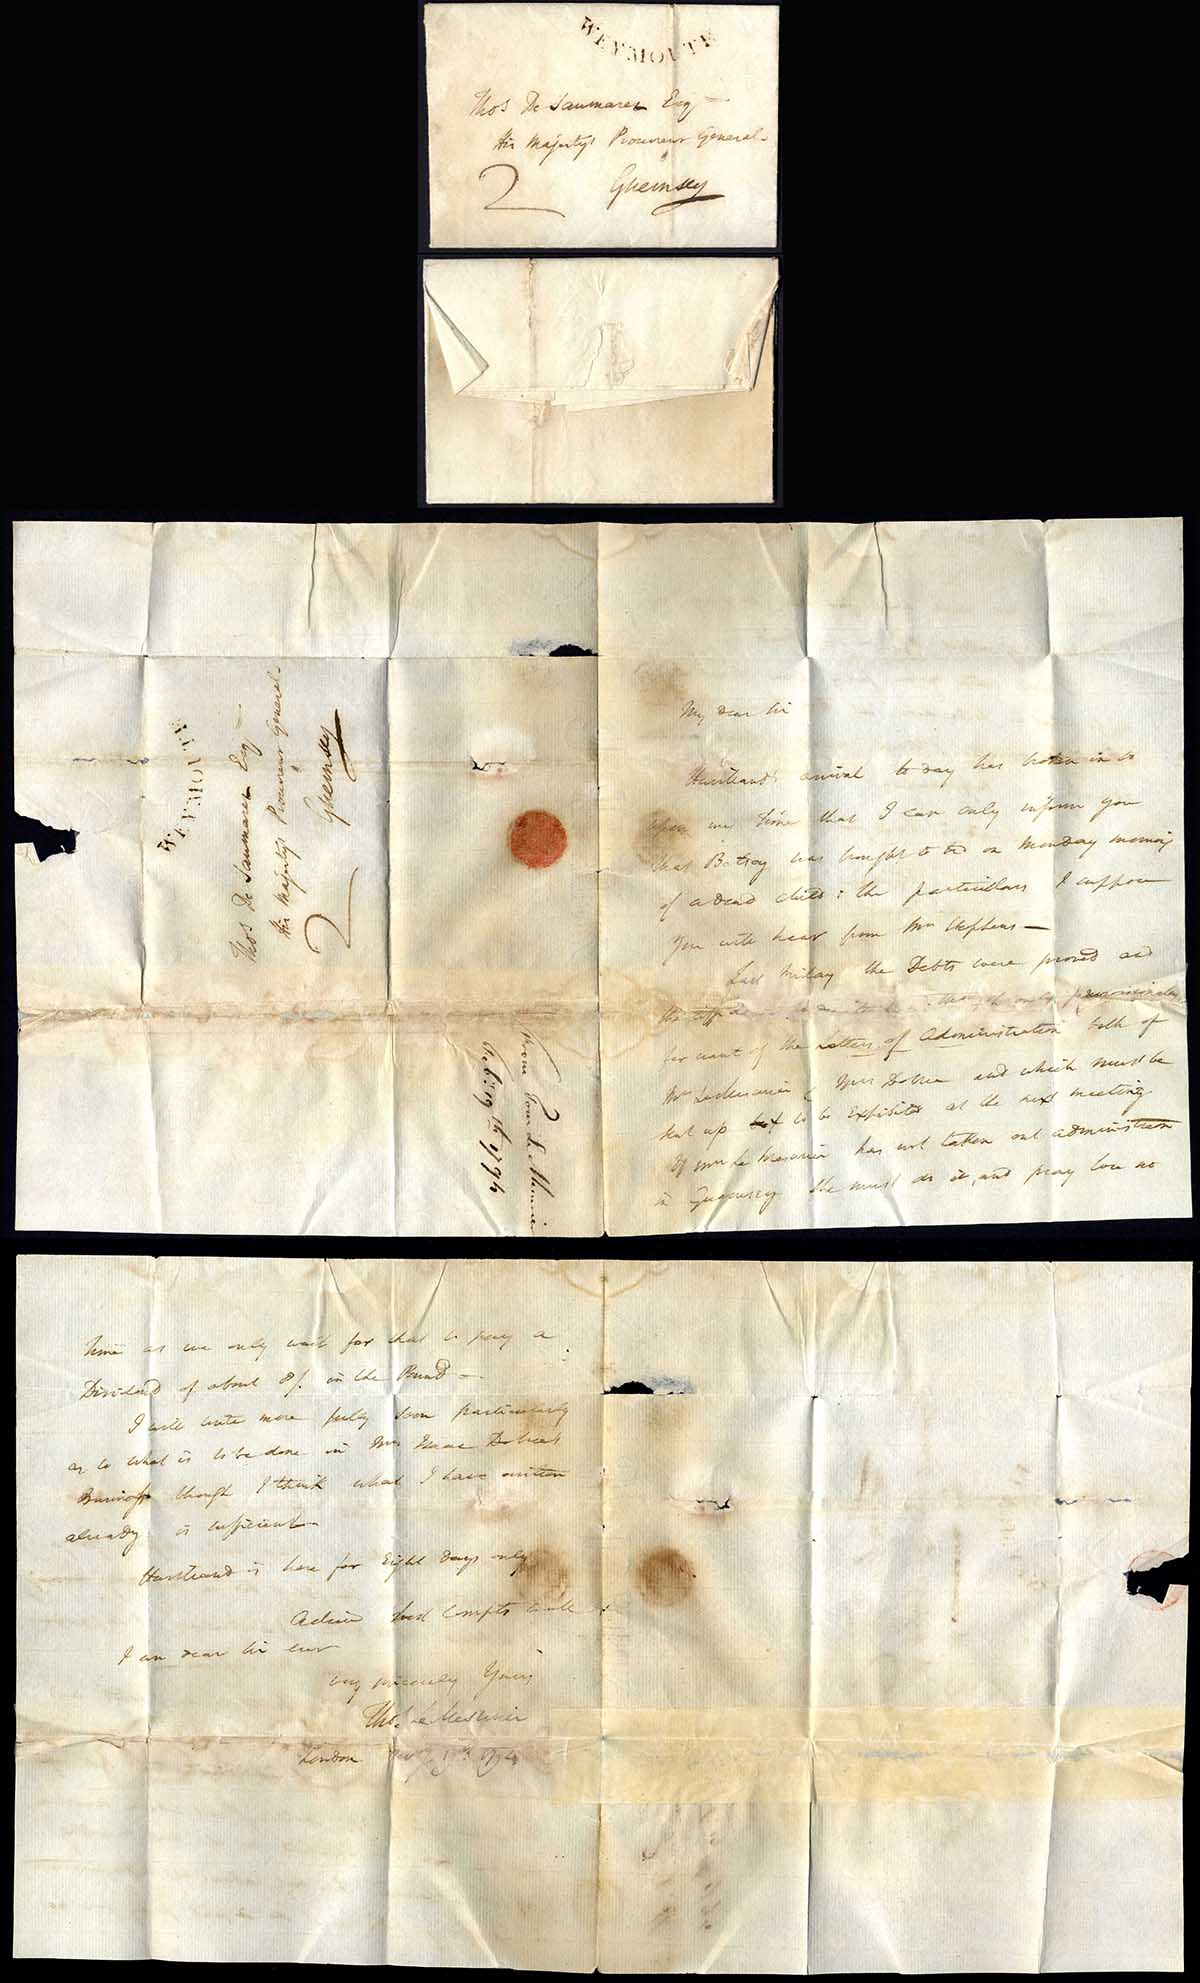 WEYMOUTH
Thos De Saumarez Esq
His Majesty's Procureur General
2 Guernsey
WEYMOUTH
Thos De Saumarez Esq
His Majesty's Procureur General
2 Guernsey
From Thos Le Mesurier
My dear Sir
arrival to day has broken in so
upon my time that I can only inform you
that Betsey was brought to bed on Monday morning
of a dead child: the particulars I suppose
you will hear from Mrs Stephens —
Last Friday the Debts were proved and
the only provisionally
for want of the Letters of Administration both of
Mr Le Mesurier & Mrs Dobree and which must be
sent up to be Exhibited at the next meeting
If Mrs Le Mesurier has not taken out administration
in Guernsey she must do it, and pray lose no
time as we only wait for that to pay a
Dividend of about 8/. in the Pound —
I will write more fully soon particularly
as to what is to be done in Mrs Isaac Dobree's
Business though I think what I have written
already is sufficient —
is here for Eight days only
best Compts to all
I am dear Sir ever
very sincerely Yours
Thos Le Mesurier
London